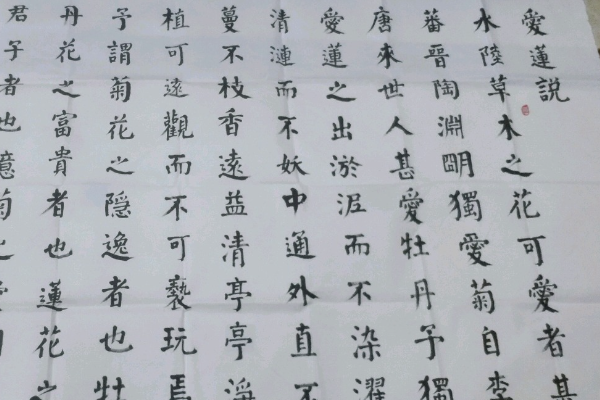 愛蓮說
水陸草木之花可愛者甚
蕃晉陶淵明獨愛菊自李
唐來世人甚愛牡丹予獨
愛蓮之出淤泥而不染濯
清漣而不妖中通外直不
蔓不枝香遠益清亭亭淨
植可遠觀而不可褻玩焉
予謂菊花之隱逸者也牡
丹花之富貴者也蓮花之
君子者也噫菊之愛